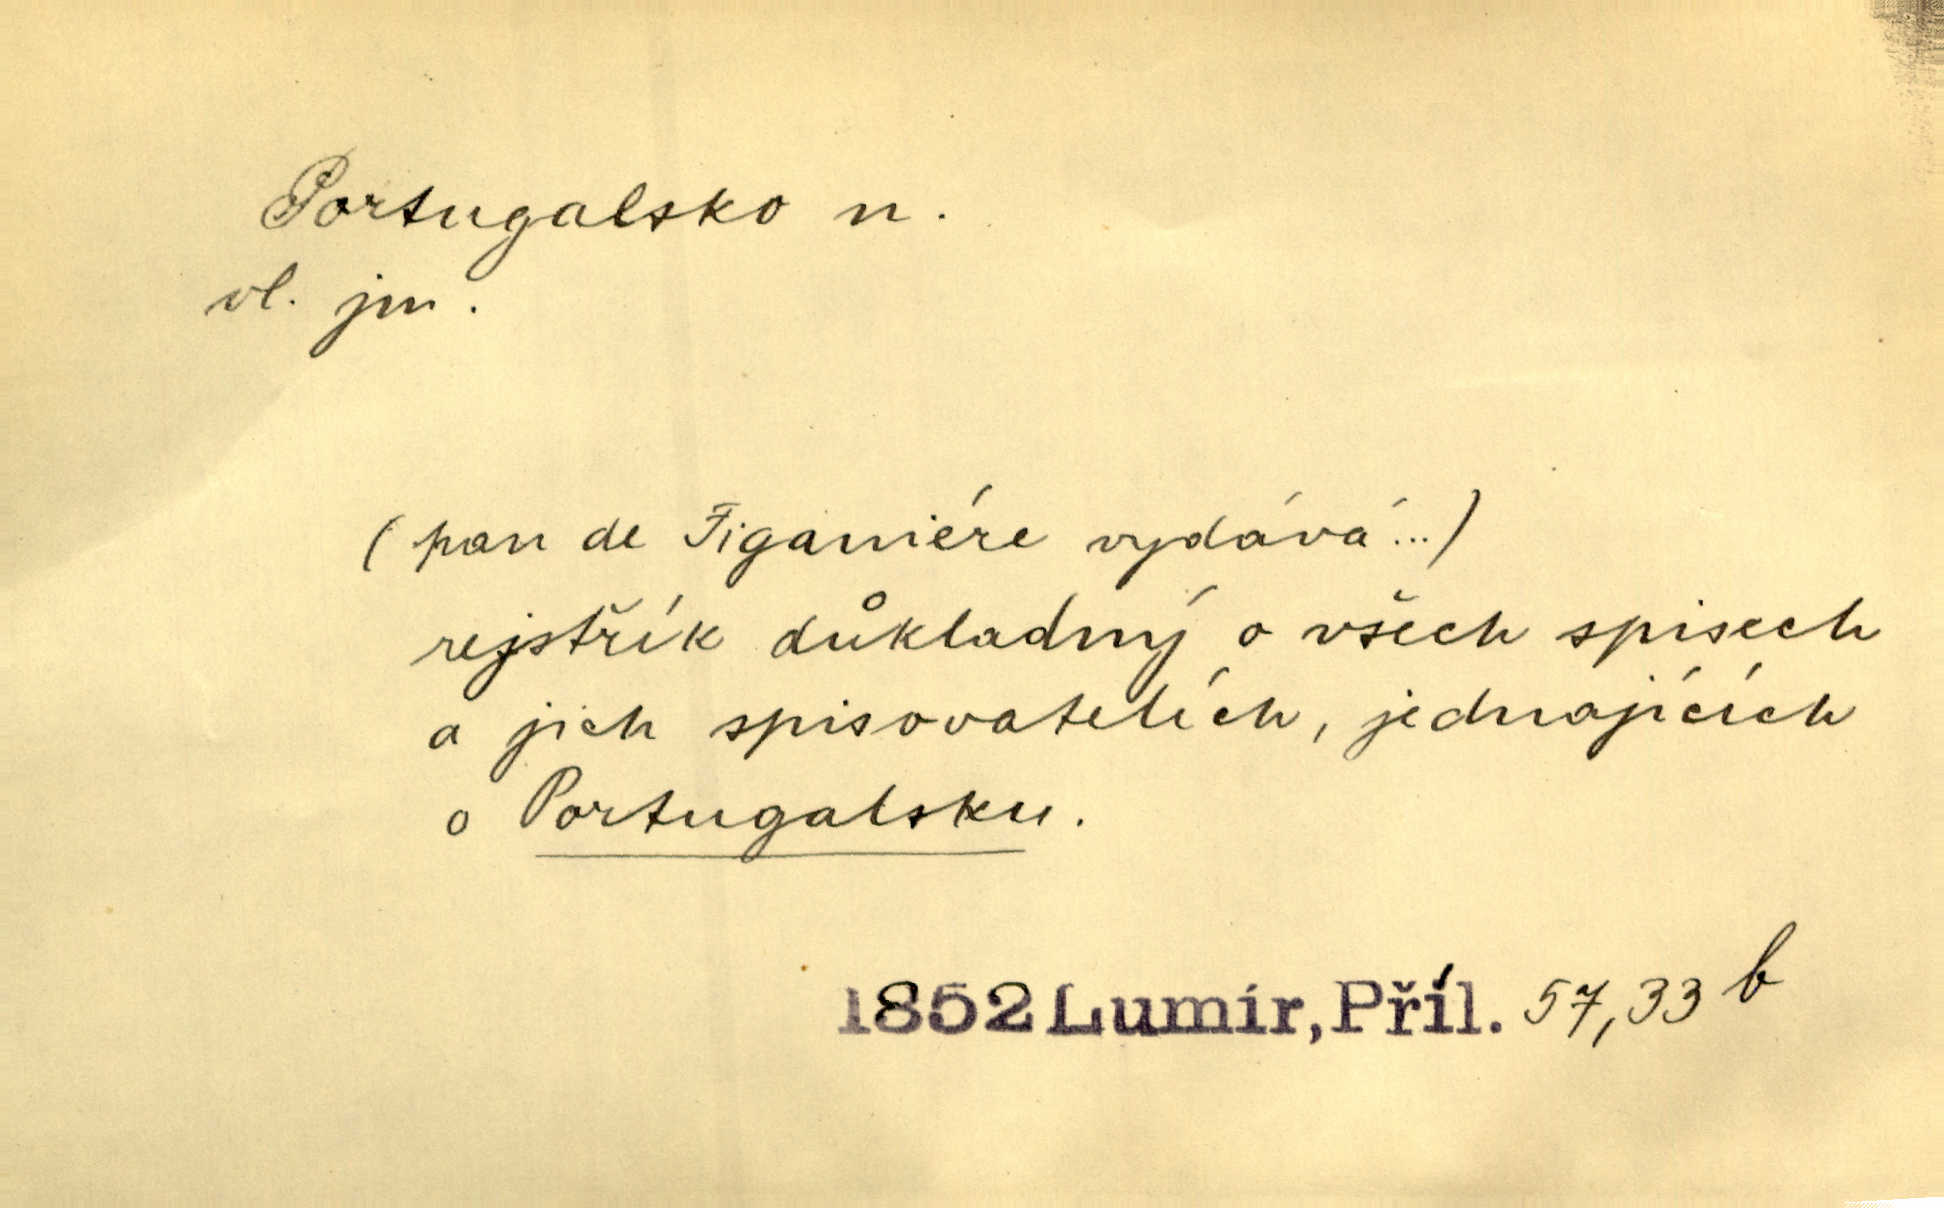 Portugalsko n.
vl. jm.
(pan de Figaniére vydává...)
rejstřík důkladný o všech spisech
a jich spisovatelích, jednajících
o Portugalsku.
1852 Lumír, Příl. 57,33 b